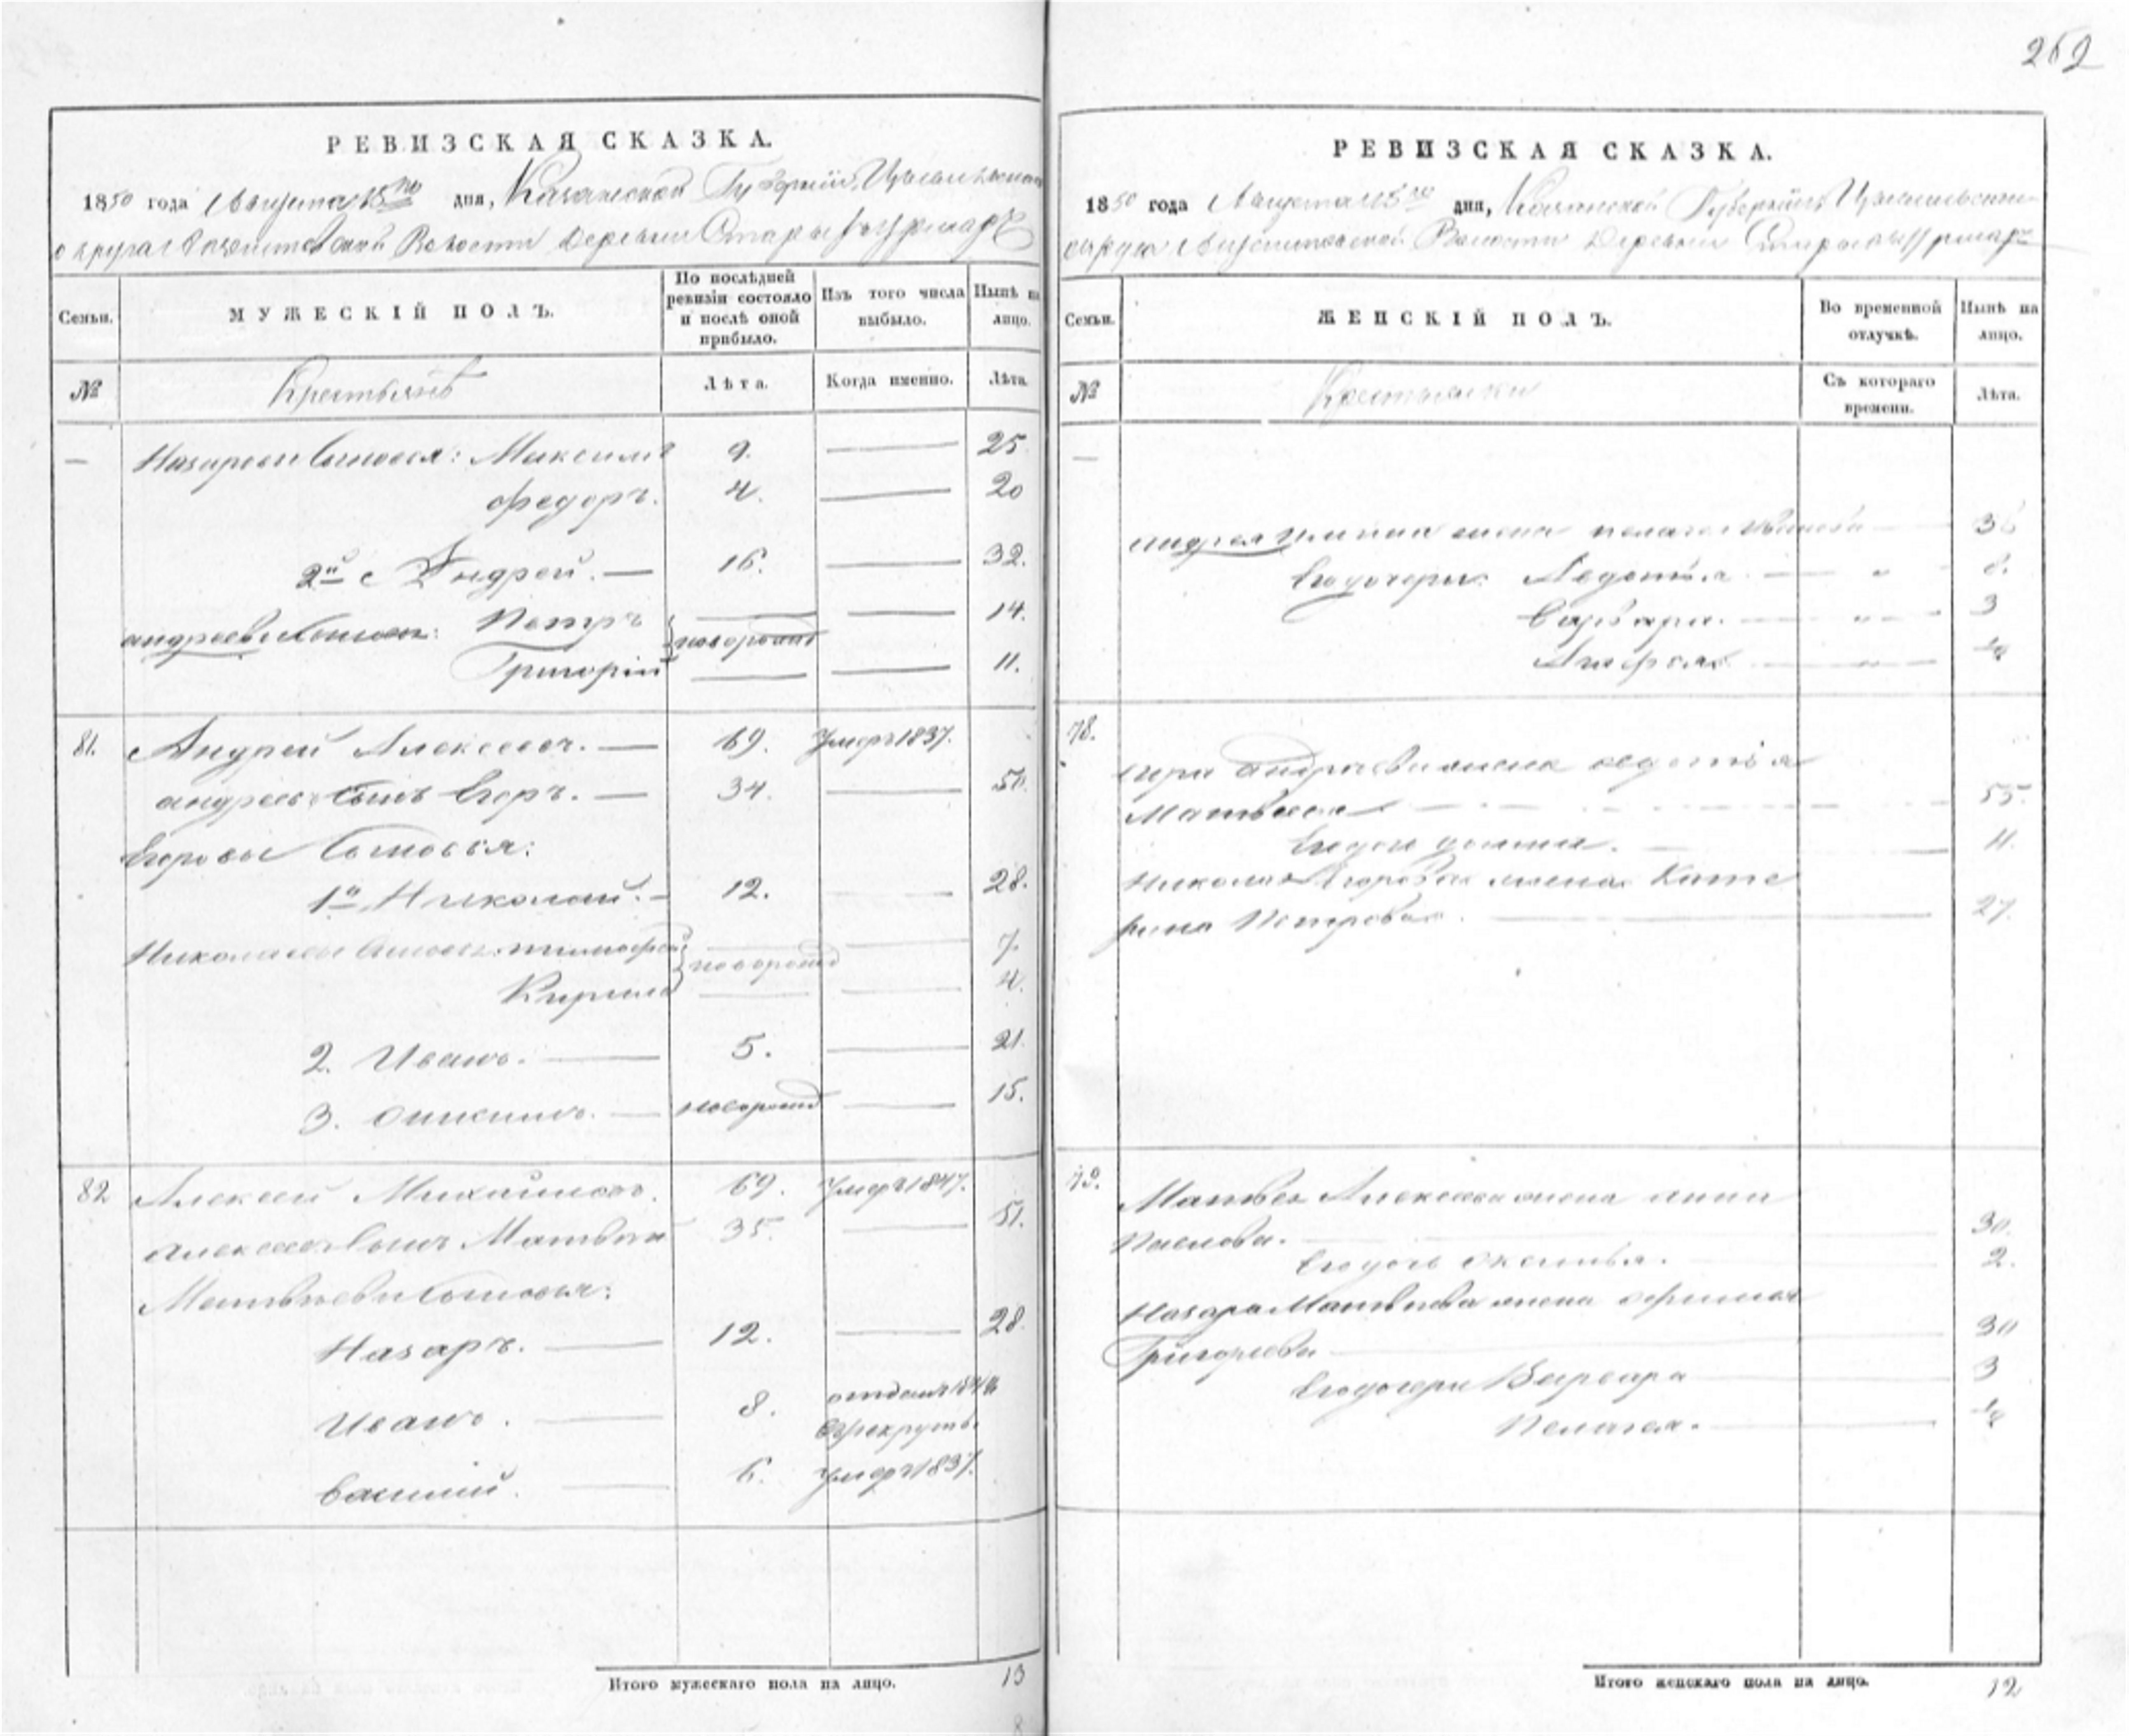 262
РЕВИЗСКАЯ СКАЗКА.
1850 года Августа 15го дня, Казанской Губерніи, Цивильскаго
округа Волости Деревни Старыхъ Урмаръ
Семьи. МУЖЕСКІЙ ПОЛЪ. По послѣдней ревизіи состояло и послѣ оной прибыло. Изъ того числа выбыло. Нынѣ на лицо.
№ Крестьянъ Лѣта. Когда именно. Лѣта.
— Назаровы сыновья: Максимъ 9. — 25.
Федоръ. 4. — 20
2й с Андрей. — 16. — 32.
Андреевы сыновья: Петръ — — 14.
новорожд
Григорій — — 11.
81. Андрей Алексеевъ. — 69. Умеръ 1837.
Андреевъ сынъ Егоръ. — 34. — 50.
Егоровы сыновья:
1й Николай. — 12. — 28.
Николаевы сыновья: Тимофей — — 7.
новорожд
Кирилъ — — 4.
2. Иванъ. — 5. — 21.
3. — новорожд — 15.
82 Алексей Михайловъ. 69. Умеръ 1847.
Алексеевъ сынъ Матвей 35. — 51.
Матвеевы сыновья:
Назаръ. — 12. — 28.
Иванъ. — 8. отданъ
в рекруты.
Василий. — 6. Умеръ 1837.
Итого мужескаго пола на лицо. 13
РЕВИЗСКАЯ СКАЗКА.
1850 года Августа 15го дня, Казанской Губерніи, Цивильскаго
округа Волости Деревни Старыхъ Урмаръ
Семьи. ЖЕНСКІЙ ПОЛЪ. Во временной отлучкѣ. Нынѣ на лицо.
№ Крестьянки Съ котораго времени. Лѣта.
—
Андрея жена Пелагея Иванова —
Его дочери: Авдотья — „ — 8.
Варвара. — „ — 3
— „ —
78.
Егора Андреева жена Авдотья
Матвеева — 55.
Его дочь — 11.
Николая Егорова жена Кате
рина Петрова. — 27.
79. Матвея Алексеева жена Анна
Павлова. — 30.
Его дочь — 2.
Назара Матвеева жена
Григорьева — 30
Его дочери Варвара — 3
Пелагея. —
Итого женскаго пола на лицо. 12